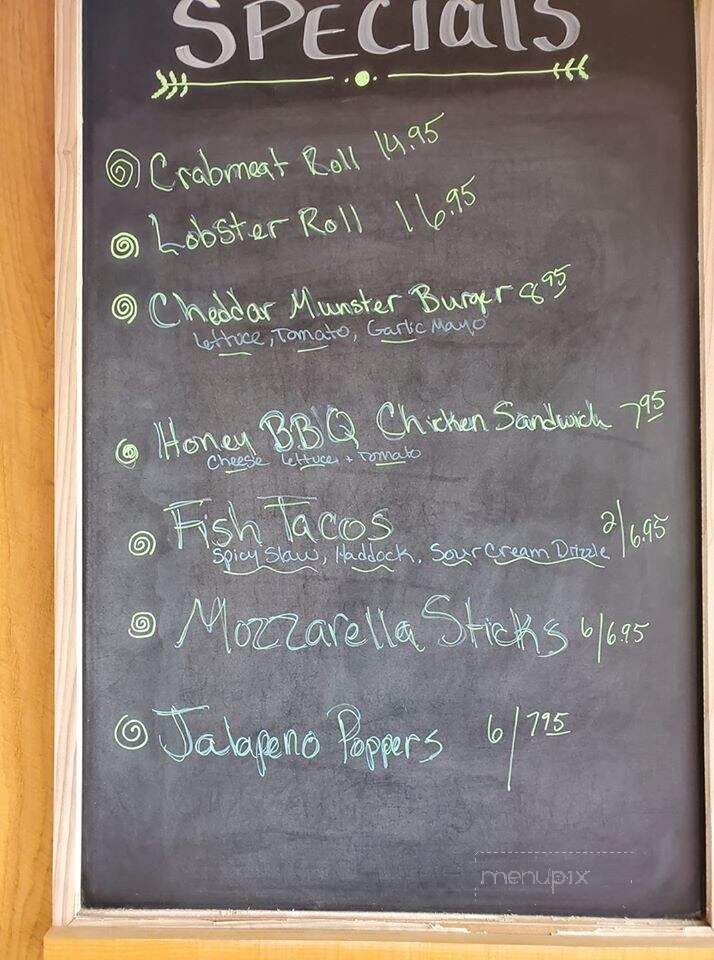 SPECIALS
Crabmeat Roll 14.95
Lobster Roll 16.95
Cheddar Munster Burger 8.95
Lettuce, Tomato, Garlic Mayo
Honey BBQ Chicken Sandwich 7.95
Cheese Lettuce + Tomato
Fish Tacos 2/6.95
Spicy Slaw, Haddock, Sour Cream Drizzle
Mozzarella Sticks 6/6.95
Jalapeno Poppers 6/7.95
menupix